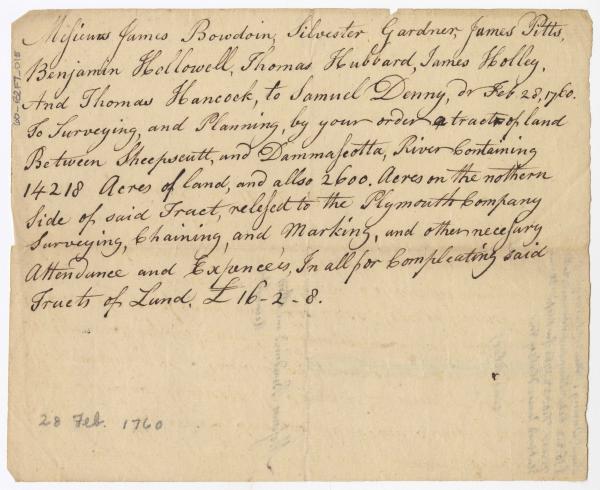 Misieurs James Bowdoin, Silvester Gardner, James Pitts,
Benjamin Hollowell, Thomas Hubbard, James Holley,
And Thomas Hancock, to Samuel Denny, dr Feb 28, 1760.
To Surveying, and Planning, by your order a tract of land
Between Sheepscutt, and Dammascotta, River Containing
14218 Acres of land, and allso 2600. Acres on the nothern
Side of said Tract, relesed to the Plymouth Company
Surveying, Chaining, and Marking, and other necesary
Attendance and Expences, In all for Compleating said
Tracts of Land. £ 16-2-8.
28 Feb. 1760